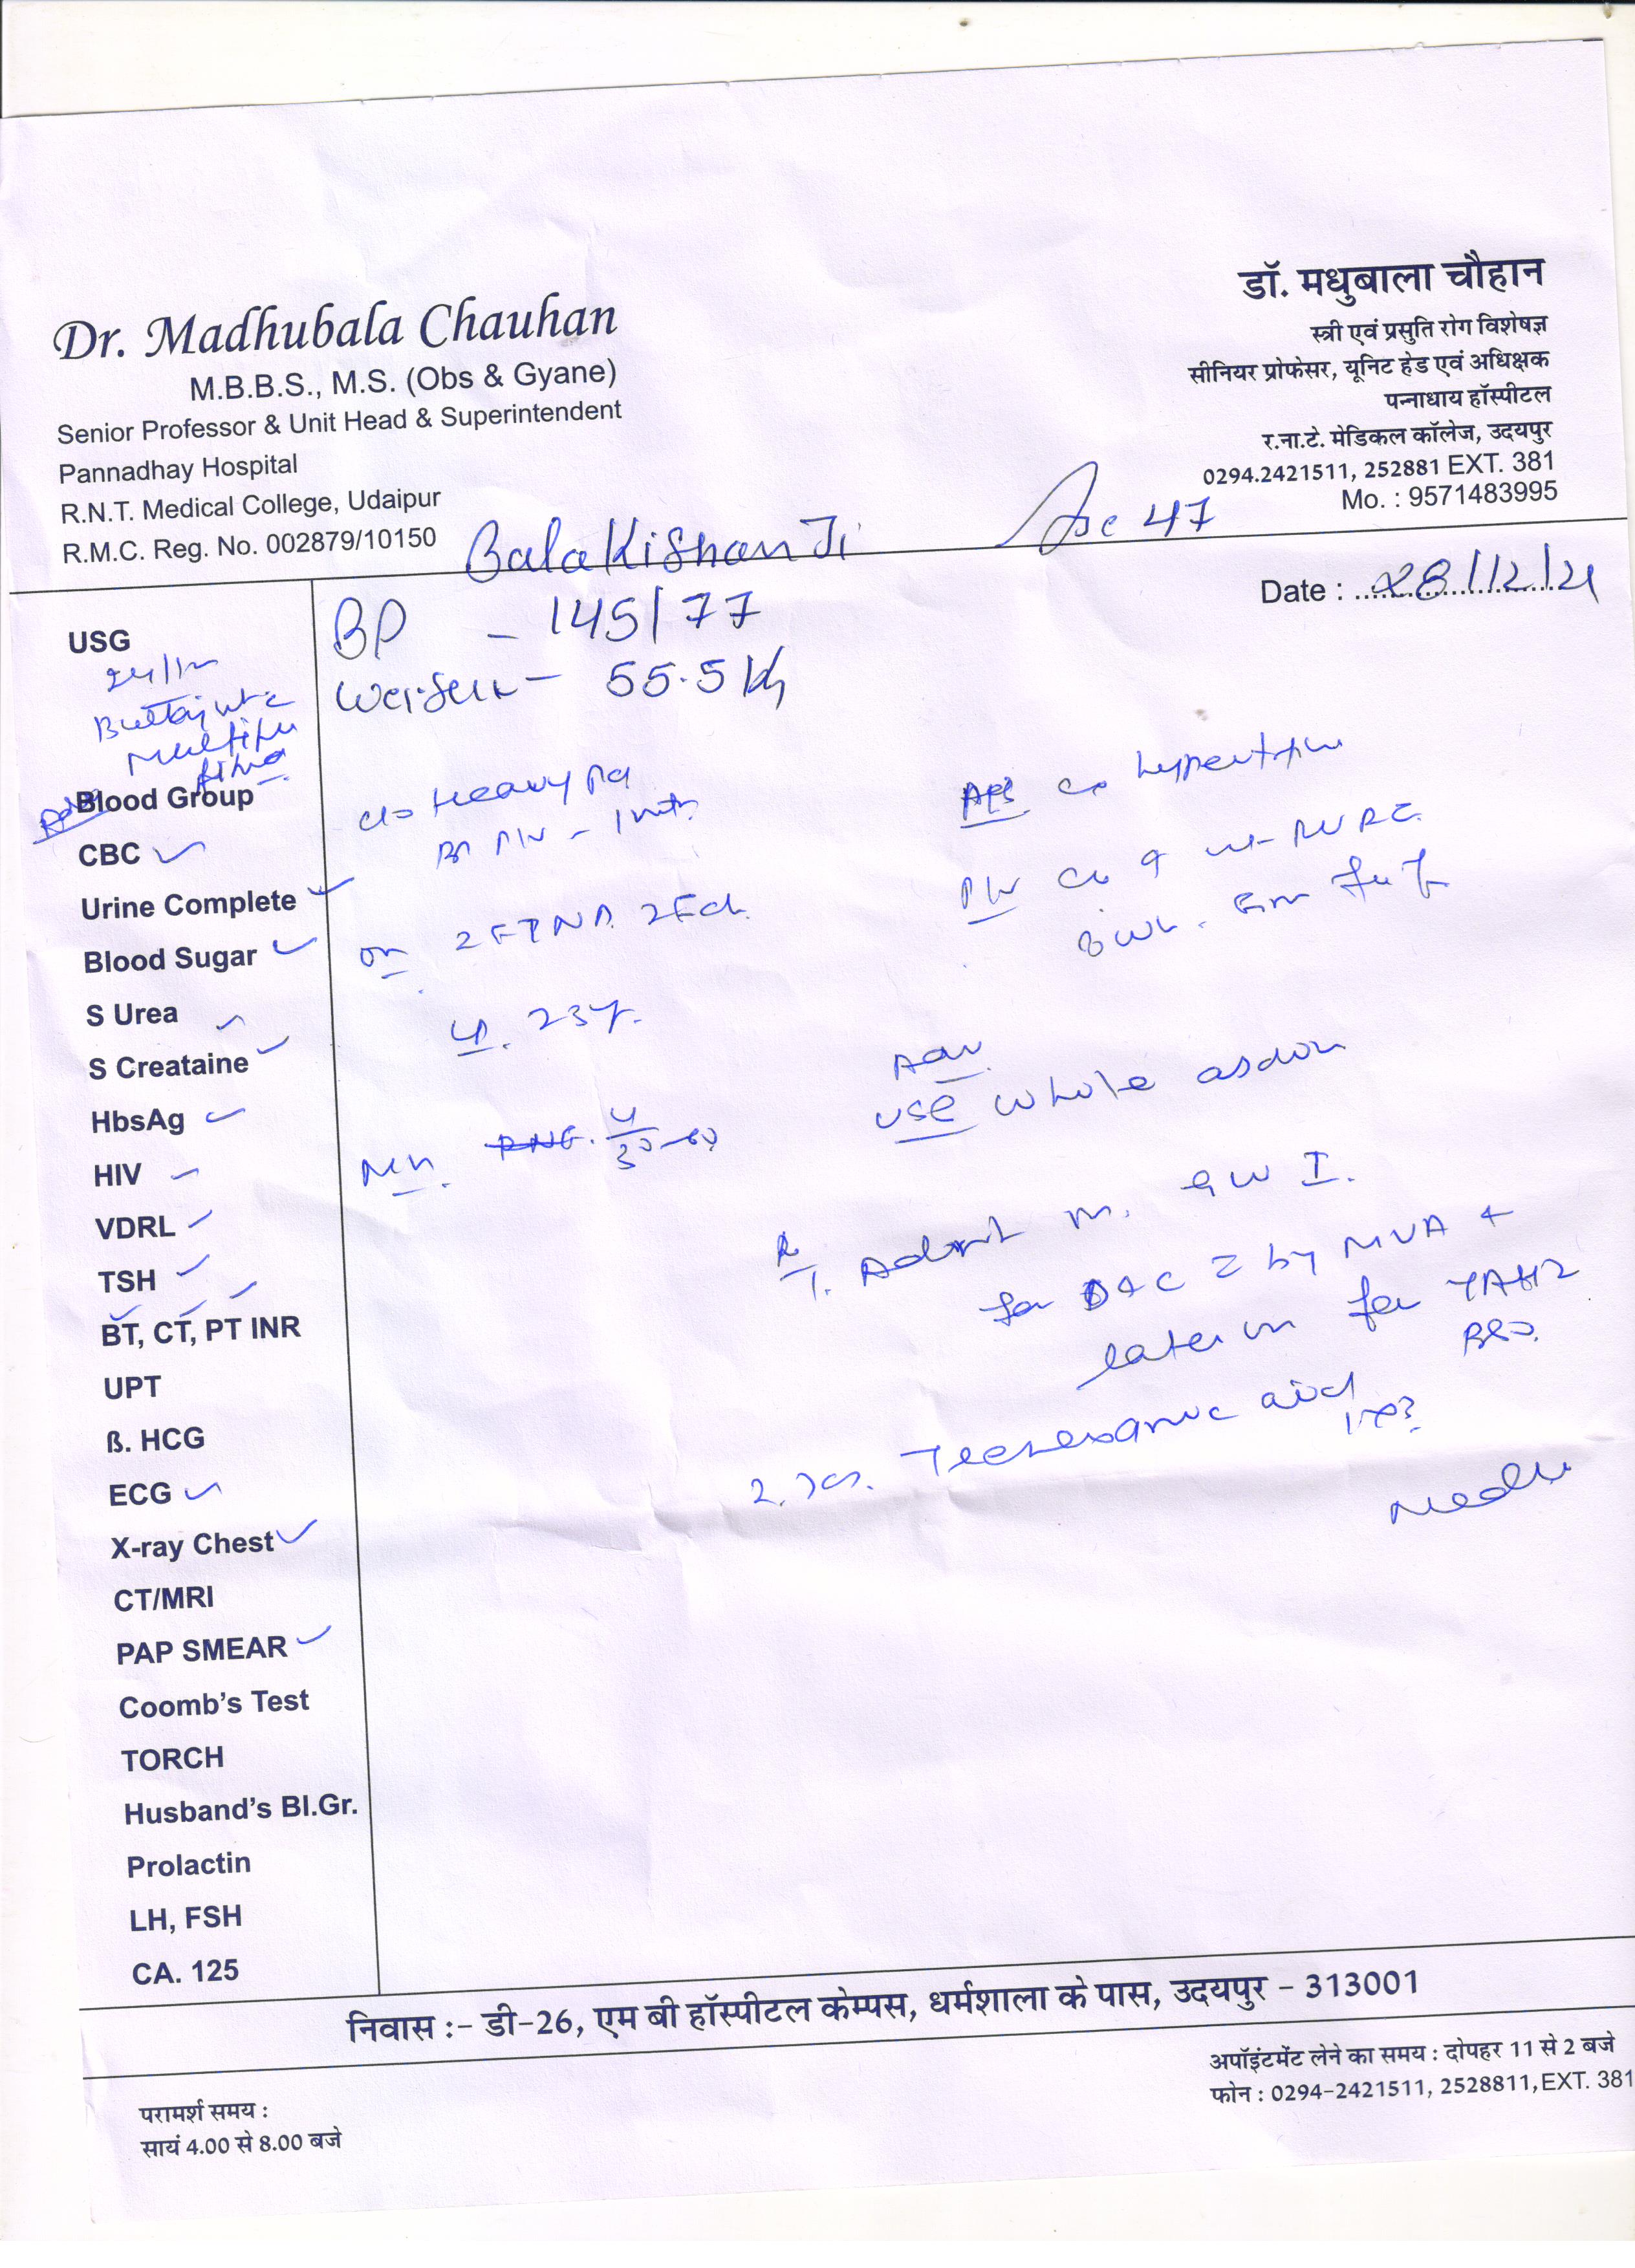 Dr. Madhubala Chauhan
M.B.B.S., M.S. (Obs & Gyane)
Senior Professor & Unit Head & Superintendent
Pannadhay Hospital
R.N.T. Medical College, Udaipur
R.M.C. Reg. No. 002879/10150
डॉ. मधुबाला चौहान
स्त्री एवं प्रसुति रोग विशेषज्ञ
सीनियर प्रोफेसर, यूनिट हेड एवं अधिक्षक
पन्नाधाय हॉस्पीटल
र.ना.टे. मेडिकल कॉलेज, उदयपुर
0294.2421511, 252881 EXT. 381
Mo. : 9571483995
Bala Kishan Ji 47
Date : 28/12/21
BP - 145/77
- 55.5 Kg
USG
24/12
Blood Group
CBC
Urine Complete
Blood Sugar
S Urea
S Creataine
HbsAg
HIV
VDRL
TSH
BT, CT, PT INR
UPT
ß. HCG
ECG
X-ray Chest
CT/MRI
PAP SMEAR
Coomb's Test
TORCH
Husband's Bl.Gr.
Prolactin
LH, FSH
CA. 125
c/o Heavy
2 FTND
23y.
Adv
USG whole abdomen
1. Admit in GW I.
for D&C by MVA +
later on for TAH
BSO.
2. Tranexamic acid
निवास :- डी-26, एम बी हॉस्पीटल केम्पस, धर्मशाला के पास, उदयपुर - 313001
अपॉइंटमेंट लेने का समय : दोपहर 11 से 2 बजे
फोन : 0294-2421511, 2528811, EXT. 381
परामर्श समय :
सायं 4.00 से 8.00 बजे